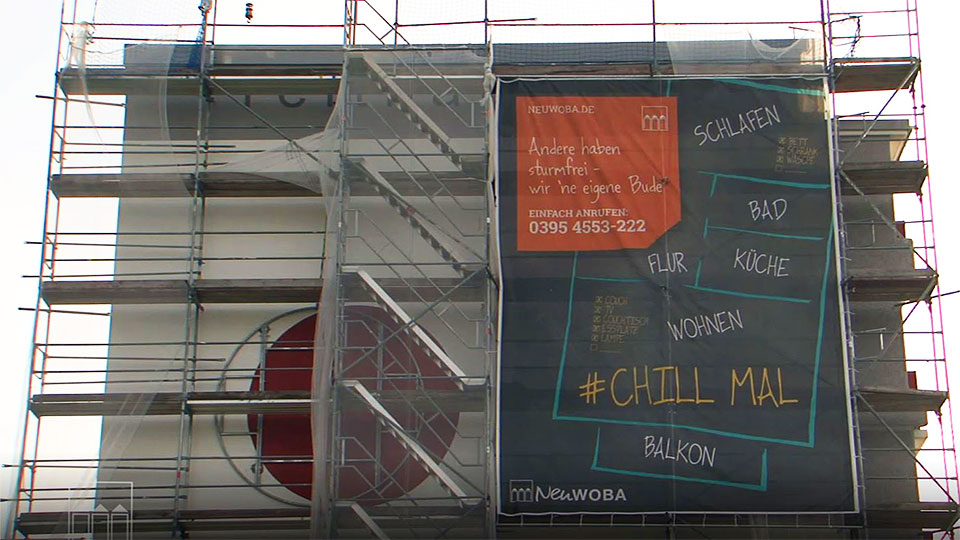 NEUWOBA.DE
Andere haben
sturmfrei -
wir 'ne eigene Bude
EINFACH ANRUFEN:
0395 4553-222
SCHLAFEN
BETT
SCHRANK
WÄSCHE
BAD
FLUR
KÜCHE
COUCH
TV
COUCHTISCH
ESSPLATZ
LAMPE
WOHNEN
#CHILL MAL
BALKON
NEUWOBA